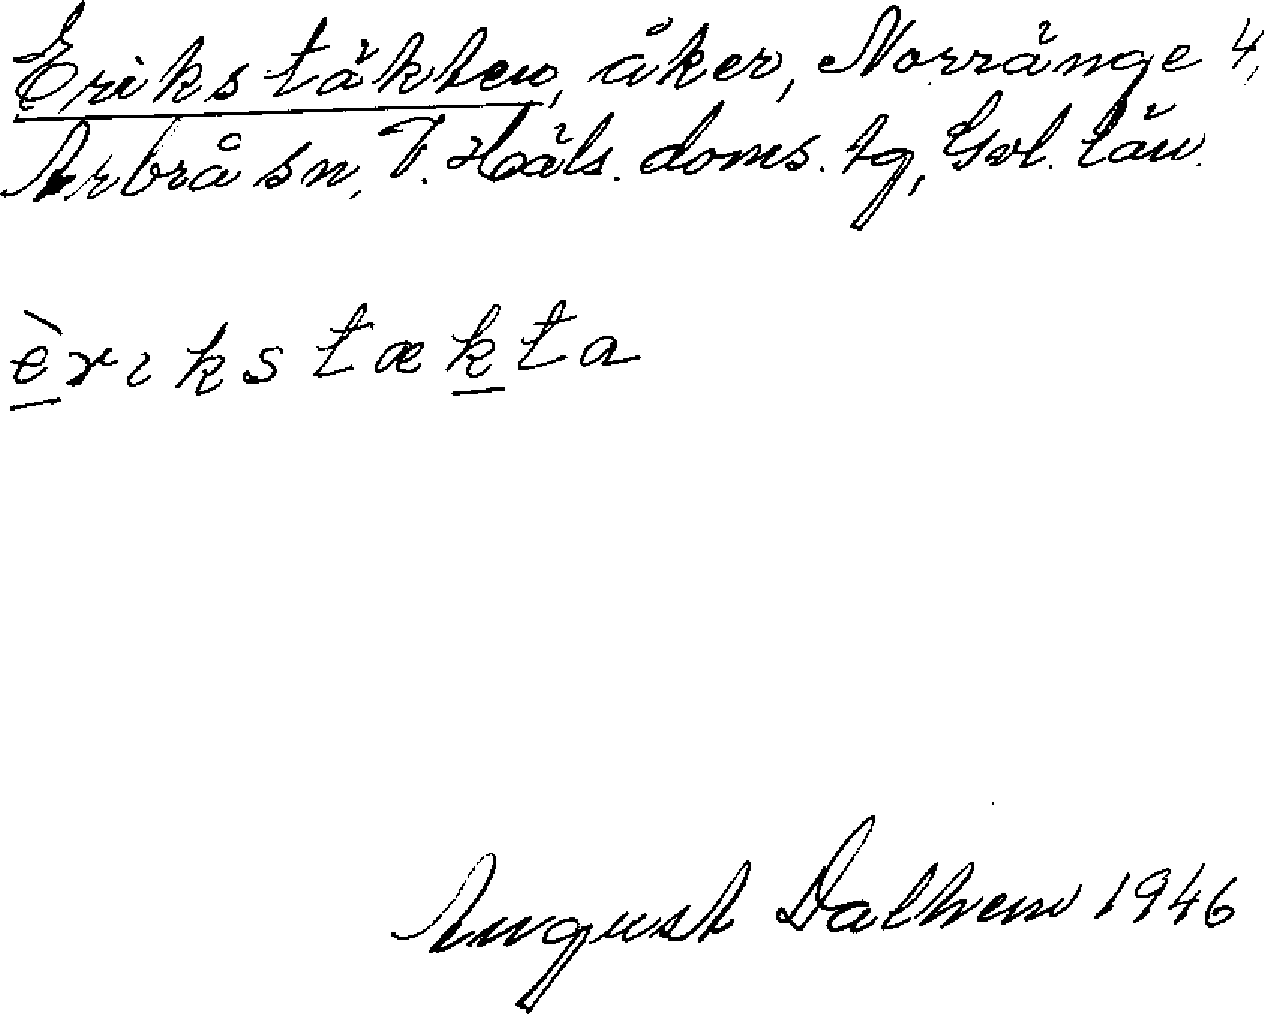 Erikstäkten, åker, Norränge 4,
Arbrå sn, V. Häls. doms. tg, Gvl. län.
èrıkstækta
August Dalhem 1946